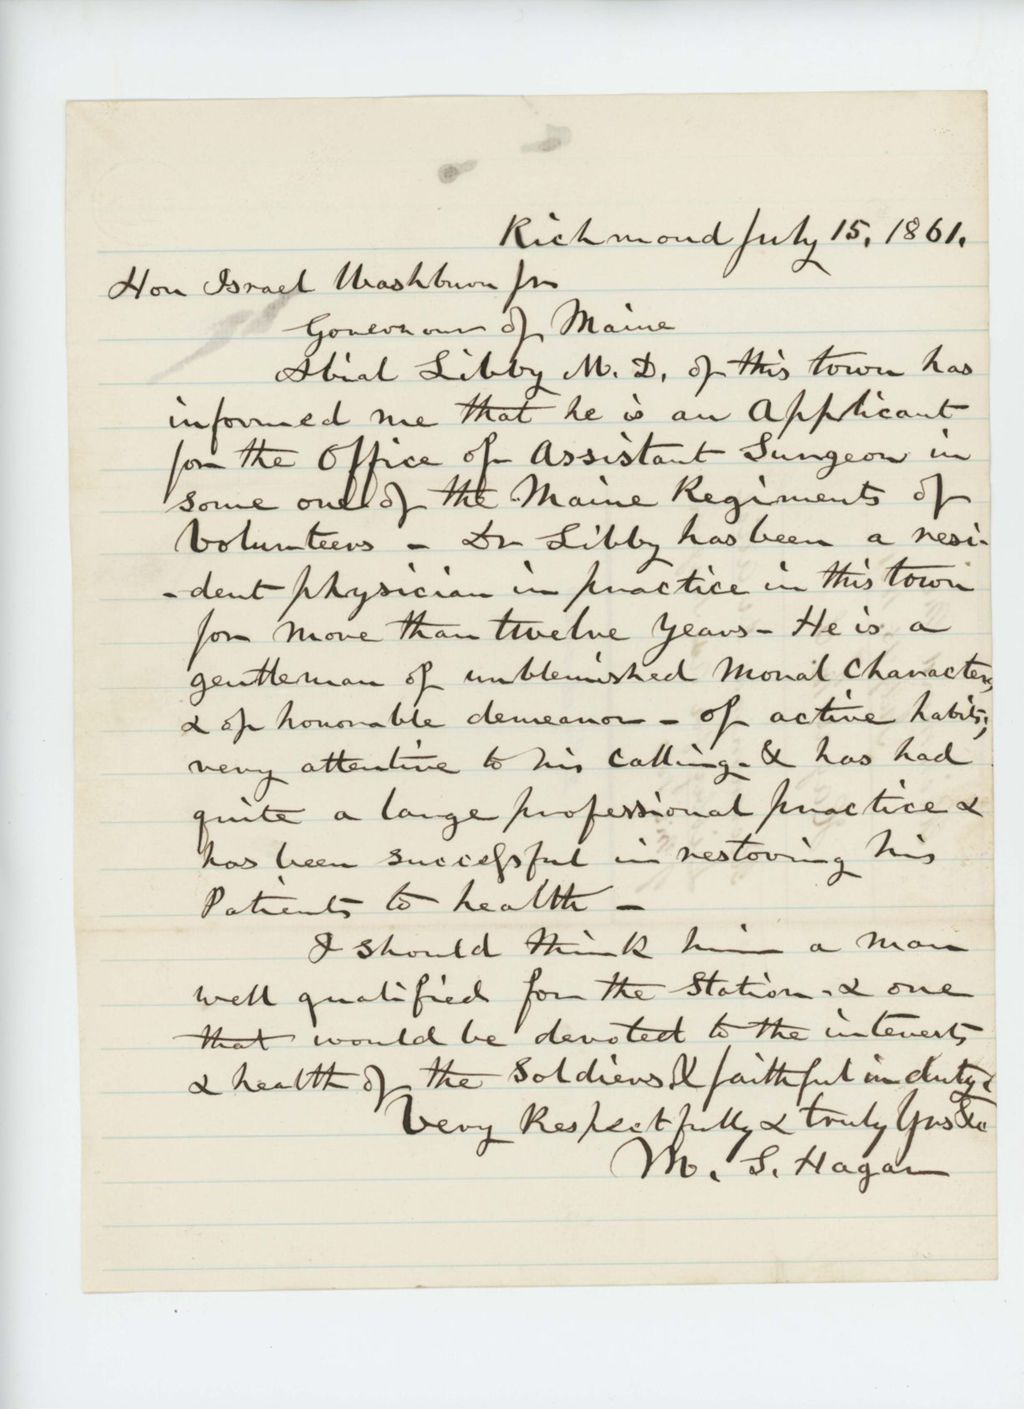 Richmond July 15, 1861.
Hon Israel Washburn Jr
Governour of Maine
Abial Libby M. D. of this town has
informed me that he is an Applicant
for the Office of Assistant Surgeon in
some one of the Maine Regiments of
Volunteers - Dr Libby has been a resi-
-dent physician in practice in this town
for more than twelve years - He is a
gentleman of unblemished moral Character,
& of honorable demeanor - of active habits,
very attentive to his Calling - & has had
quite a large professional practice &
has been successful in restoring his
Patients to health -
I should think him a man
well qualified for the Station - & one
that would be devoted to the interests
& health of the Soldiers & faithful in duty &
Very Respectfully & truly Yrs &c
M. S. Hagar